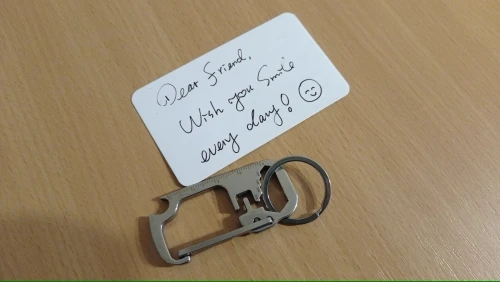 Dear Friend,
Wish you Smile
every day!